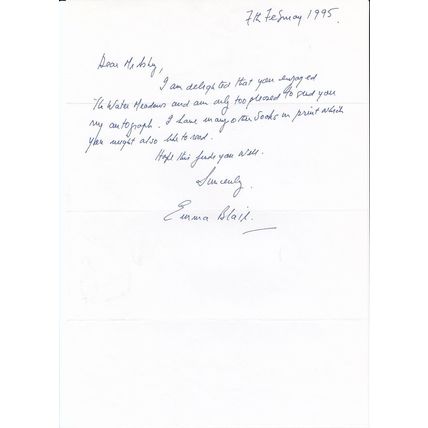 7th February 1995.
Dear Mr Asby,
I am delighted that you enjoyed
The Water Meadows and am only too pleased to send you
my autograph. I have many other books in print which
you might also like to read.
Hope this finds you well.
Sincerely,
Emma Blair.